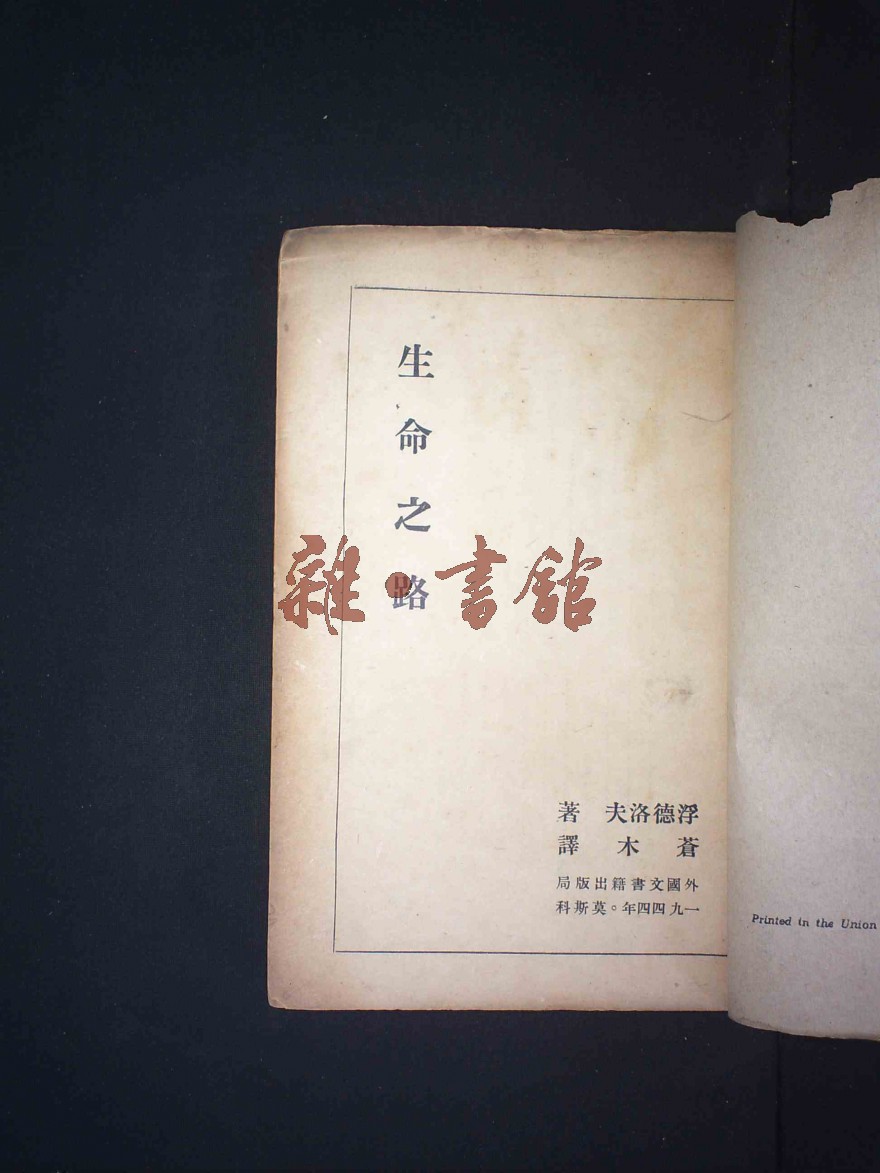 生命之路
雜·書館
浮德洛夫 著
蒼木譯
外國文書籍出版局
一九四四年。莫斯科
Printed in the Union